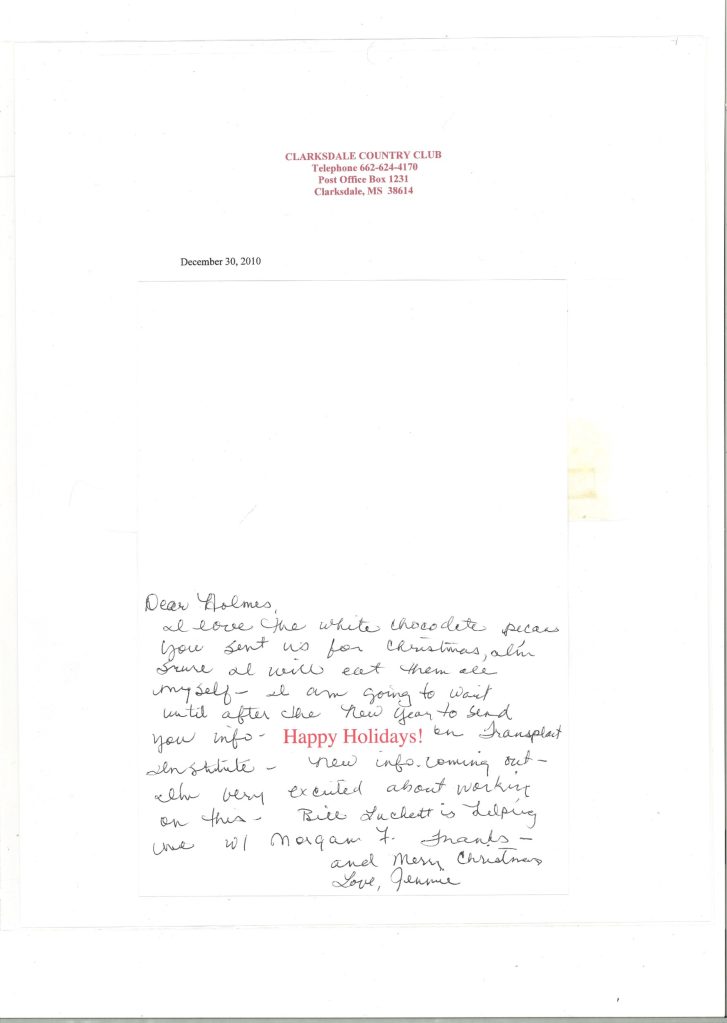 CLARKSDALE COUNTRY CLUB
Telephone 662-624-4170
Post Office Box 1231
Clarksdale, MS 38614
December 30, 2010
Dear Holmes,
I love the white chocolate pecans
you sent us for Christmas, I'm
sure I will eat them all
myself - I am going to wait
until after the New Year to send
you info - Happy Holidays! on Transplant
Institute - New info. coming out -
I'm very excited about working
on this - Bill Luckett is helping
me w/ Morgan F. Thanks -
and Merry Christmas
Love, Jennie